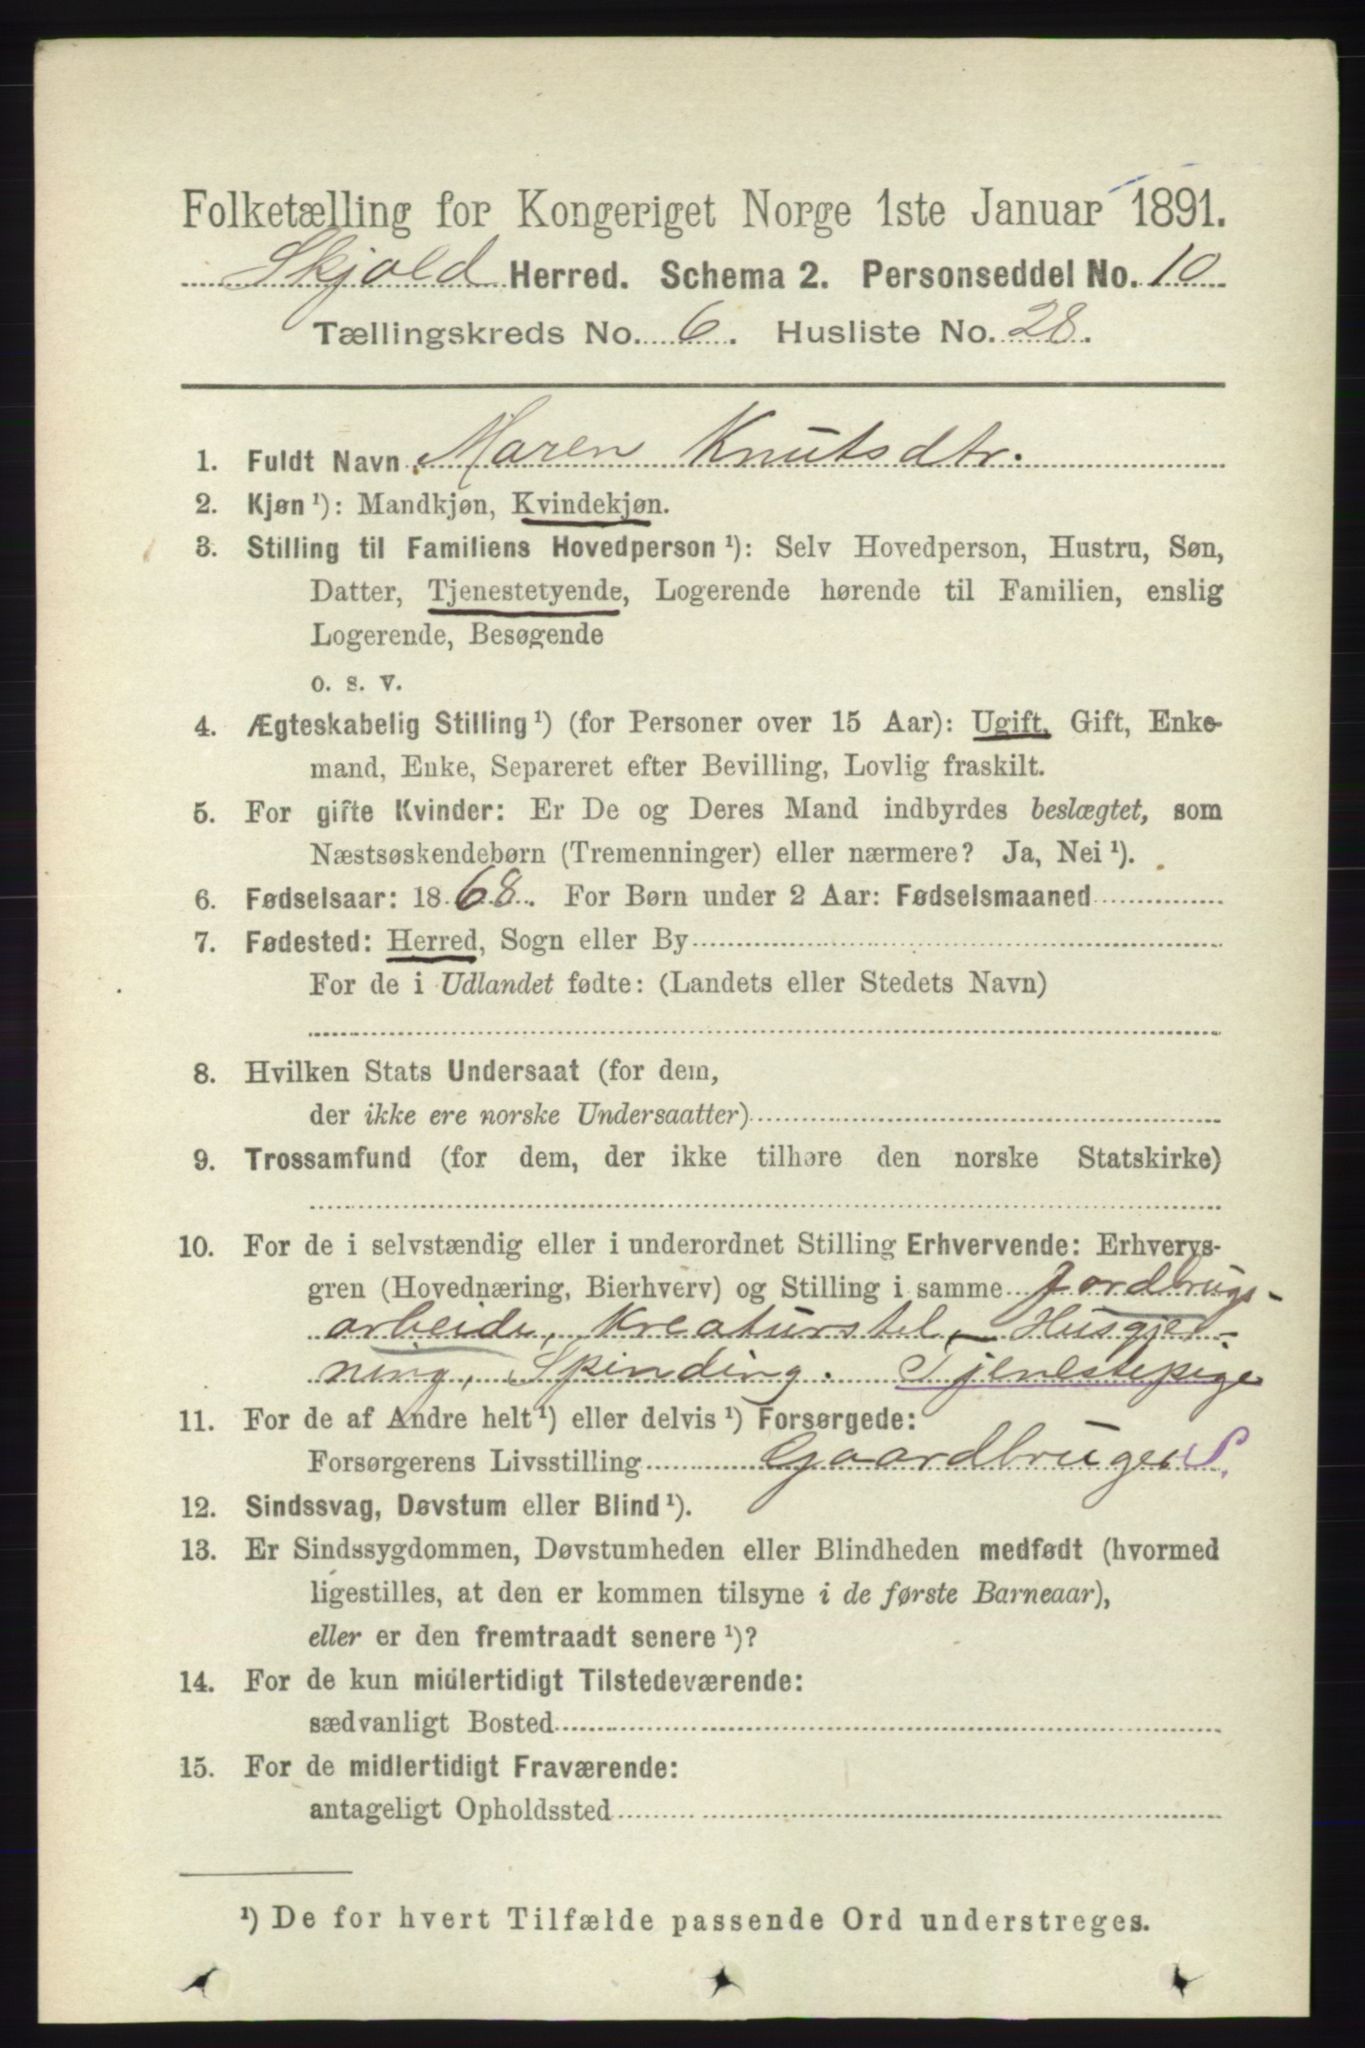 Folketælling for Kongeriget Norge 1ste Januar 1891.
Skjold Herred. Schema 2. Personseddel No. 10
Tællingskreds No. 6. Husliste No. 28.
1. Fuldt Navn Maren Knutsdtr.
2. Kjøn ¹): Mandkjøn, Kvindekjøn.
3. Stilling til Familiens Hovedperson ¹): Selv Hovedperson, Hustru, Søn,
Datter, Tjenestetyende, Logerende hørende til Familien, enslig
Logerende, Besøgende
o. s. v.
4. Ægteskabelig Stilling ¹) (for Personer over 15 Aar): Ugift, Gift, Enke-
mand, Enke, Separeret efter Bevilling, Lovlig fraskilt.
5. For gifte Kvinder: Er De og Deres Mand indbyrdes beslægtet, som
Næstsøskendebørn (Tremenninger) eller nærmere? Ja, Nei ¹).
6. Fødselsaar: 1868. For Børn under 2 Aar: Fødselsmaaned
7. Fødested: Herred, Sogn eller By
For de i Udlandet fødte: (Landets eller Stedets Navn)
8. Hvilken Stats Undersaat (for dem,
der ikke ere norske Undersaatter)
9. Trossamfund (for dem, der ikke tilhøre den norske Statskirke)
10. For de i selvstændig eller i underordnet Stilling Erhvervende: Erhvervs-
gren (Hovednæring, Bierhverv) og Stilling i samme Jordbrugs-
arbeide, Kreaturstel, Husgjer-
ning, Spinding. Tjenestepige
11. For de af Andre helt ¹) eller delvis ¹) Forsørgede:
Forsørgerens Livsstilling Gaardbruger S.
12. Sindssvag, Døvstum eller Blind ¹).
13. Er Sindssygdommen, Døvstumheden eller Blindheden medfødt (hvormed
ligestilles, at den er kommen tilsyne i de første Barneaar),
eller er den fremtraadt senere ¹)?
14. For de kun midlertidigt Tilstedeværende:
sædvanligt Bosted
15. For de midlertidigt Fraværende:
antageligt Opholdssted
¹) De for hvert Tilfælde passende Ord understreges.